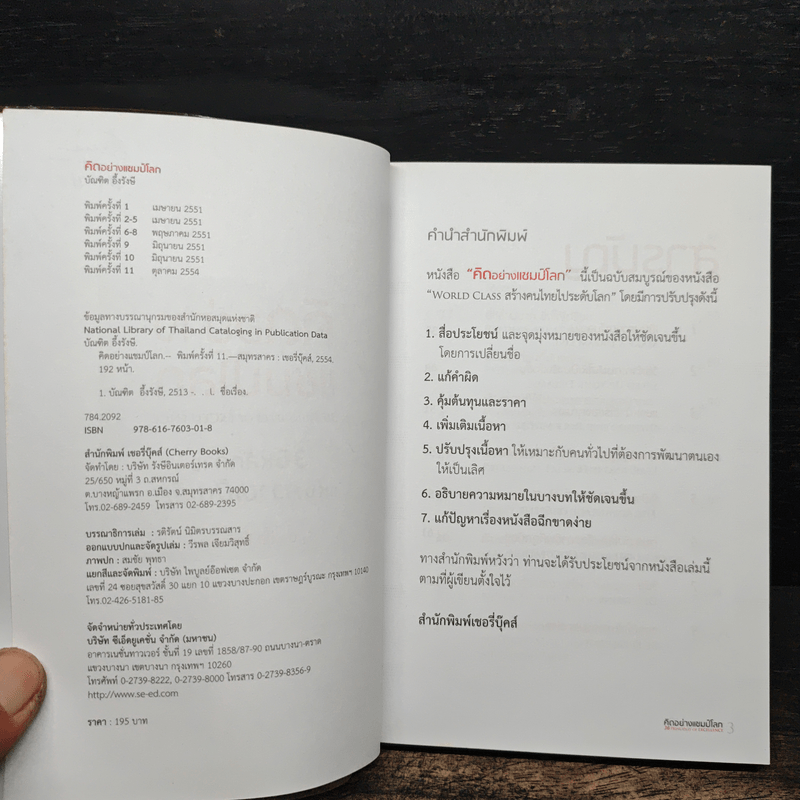 คิดอย่างแชมป์โลก
บัณฑิต อึ้งรังษี
พิมพ์ครั้งที่ 1 เมษายน 2551
พิมพ์ครั้งที่ 2-5 เมษายน 2551
พิมพ์ครั้งที่ 6-8 พฤษภาคม 2551
พิมพ์ครั้งที่ 9 มิถุนายน 2551
พิมพ์ครั้งที่ 10 มิถุนายน 2551
พิมพ์ครั้งที่ 11 ตุลาคม 2554
ข้อมูลทางบรรณานุกรมของสำนักหอสมุดแห่งชาติ
National Library of Thailand Cataloging in Publication Data
บัณฑิต อึ้งรังษี.
คิดอย่างแชมป์โลก.-- พิมพ์ครั้งที่ 11.--สมุทรสาคร : เชอรี่บุ๊คส์, 2554.
192 หน้า.
1. บัณฑิต อึ้งรังษี, 2513 -. . I. ชื่อเรื่อง.
784.2092
ISBN 978-616-7603-01-8
สำนักพิมพ์ เชอรี่บุ๊คส์ (Cherry Books)
จัดทำโดย : บริษัท รังษีอินเตอร์เทรด จำกัด
25/650 หมู่ที่ 3 ถ.สหกรณ์
ต.บางหญ้าแพรก อ.เมือง จ.สมุทรสาคร 74000
โทร.02-689-2459 โทรสาร 02-689-2395
บรรณาธิการเล่ม : รติรัตน์ นิมิตรบรรณสาร
ออกแบบปกและจัดรูปเล่ม : วีรพล เจียมวิสุทธิ์
ภาพปก : สมชัย พุทธา
แยกสีและจัดพิมพ์ : บริษัท ไพบูลย์อ๊อฟเซต จำกัด
เลขที่ 24 ซอยสุขสวัสดิ์ 30 แยก 10 แขวงบางปะกอก เขตราษฎร์บูรณะ กรุงเทพฯ 10140
โทร.02-426-5181-85
จัดจำหน่ายทั่วประเทศโดย
บริษัท ซีเอ็ดยูเคชั่น จำกัด (มหาชน)
อาคารเนชั่นทาวเวอร์ ชั้นที่ 19 เลขที่ 1858/87-90 ถนนบางนา-ตราด
แขวงบางนา เขตบางนา กรุงเทพฯ 10260
โทรศัพท์ 0-2739-8222, 0-2739-8000 โทรสาร 0-2739-8356-9
http://www.se-ed.com
ราคา : 195 บาท
คำนำสำนักพิมพ์
หนังสือ "คิดอย่างแชมป์โลก" นี้เป็นฉบับสมบูรณ์ของหนังสือ
"WORLD CLASS สร้างคนไทยไประดับโลก" โดยมีการปรับปรุงดังนี้
1. สื่อประโยชน์ และจุดมุ่งหมายของหนังสือให้ชัดเจนขึ้น
โดยการเปลี่ยนชื่อ
2. แก้คำผิด
3. คุ้มต้นทุนและราคา
4. เพิ่มเติมเนื้อหา
5. ปรับปรุงเนื้อหา ให้เหมาะกับคนทั่วไปที่ต้องการพัฒนาตนเอง
ให้เป็นเลิศ
6. อธิบายความหมายในบางบทให้ชัดเจนขึ้น
7. แก้ปัญหาเรื่องหนังสือฉีกขาดง่าย
ทางสำนักพิมพ์หวังว่า ท่านจะได้รับประโยชน์จากหนังสือเล่มนี้
ตามที่ผู้เขียนตั้งใจไว้
สำนักพิมพ์เชอรี่บุ๊คส์
คิดอย่างแชมป์โลก
3